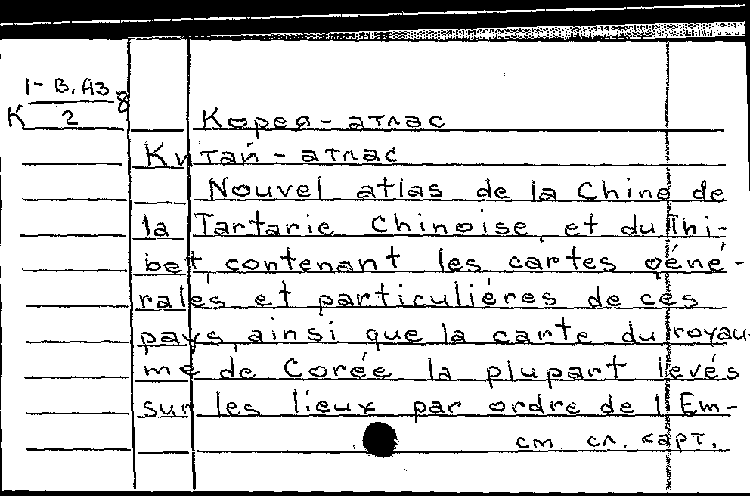 1-B.Аз
К 2 8
Корея-атлас
Китай-атлас
Nouvel atlas de la Chine de
la Tartarie Chinoise, et du Thi-
bet, contenant les cartes géné-
rales et particuliéres de ces
pays, ainsi que la carte du royau-
me de Corée la plupart levés
sur les lieux par ordre de l'Em-
см сл. карт.